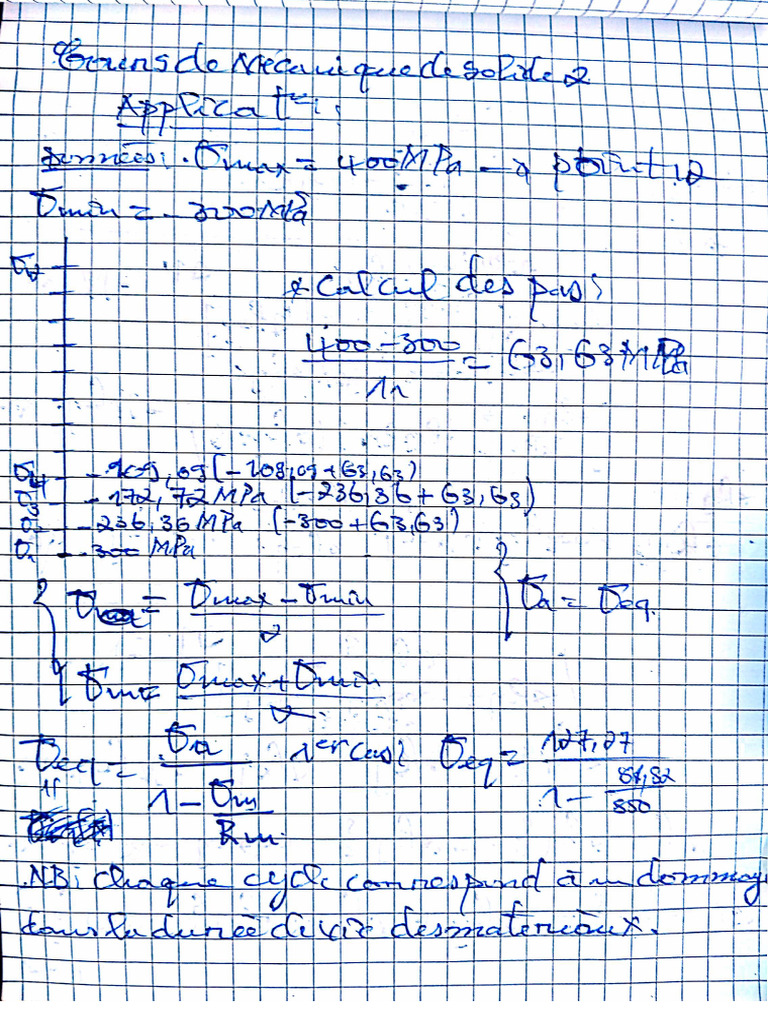 Cours de Mécanique de solide 2
Applicat° :
Données : . σmax = 400 MPa → point 12
σmin = -300 MPa
* Calcul des pas :
400 - 300 / 11 = 63,63 MPa
σ4 - 109,09 (-108,09 + 63,63)
σ3 - 172,72 MPa (-236,36 + 63,63)
σ2 - 236,36 MPa (-300 + 63,63)
σ1 - 300 MPa
σa = σmax - σmin / 2
σa = σeq.
σm = σmax + σmin / 2
σeq = σa / 1 - σm / Rm 1er cas : σeq = 127,27 / 1 - 81,82 / 850
NB : chaque cycle correspond à un dommag
dans la durée de vie des materiaux.